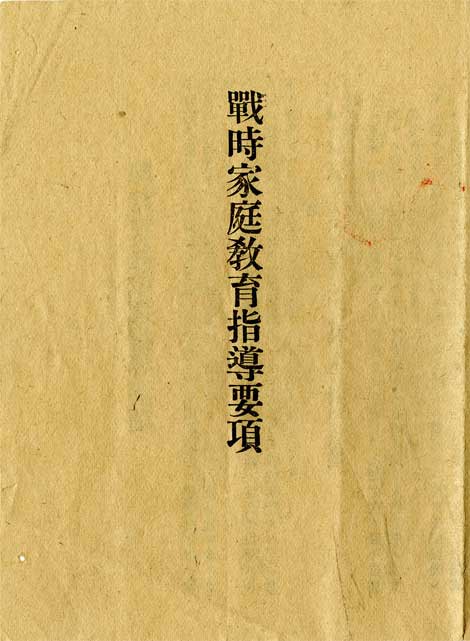 戰時家庭敎育指導要項